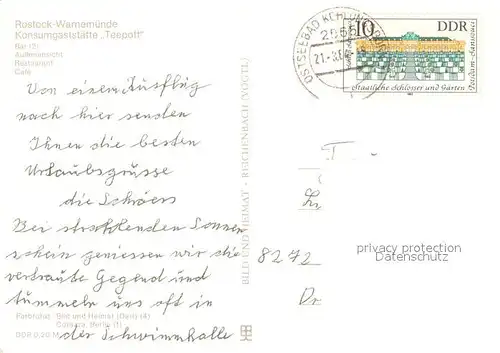 Rostock-Warnemünde
Konsumgaststätte „Teepott“
Bar (2)
Außenansicht
Restaurant
Café
Von einem Ausflug
nach hier senden
Ihnen die besten
Urlaubsgrüsse
die Schöers
Bei strahlenden Sonnen
schein geniessen wir die
vertraute Gegend und
tummeln uns oft in
der Schwimmhalle
Farbfotos: Bild und Heimat (4)
Berlin (1)
DDR 0,20 M
BILD UND HEIMAT · REICHENBACH (VOGTL)
OSTSEEBAD KÜHLUNGSBORN
10
DDR
Potsdam-Sanssouci
Staatliche Schlösser und Gärten
8272
privacy protection
Datenschutz